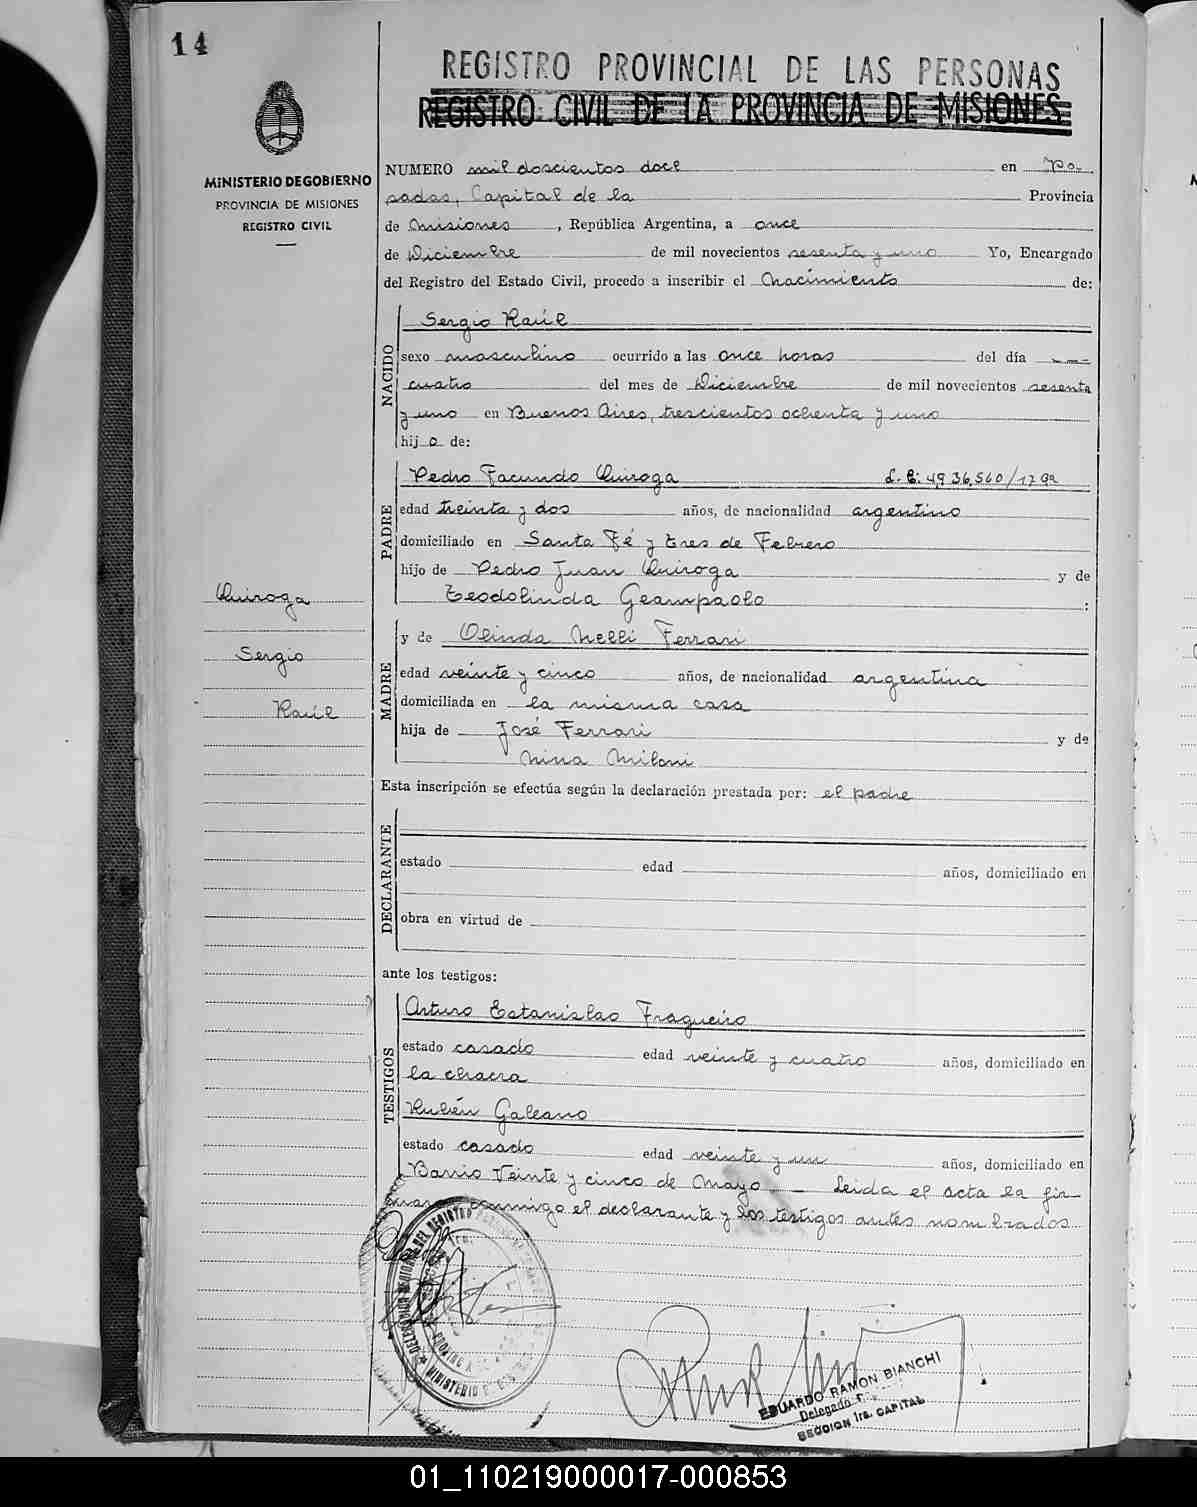 14
REGISTRO PROVINCIAL DE LAS PERSONAS
REGISTRO CIVIL DE LA PROVINCIA DE MISIONES
MINISTERIO DE GOBIERNO
PROVINCIA DE MISIONES
REGISTRO CIVIL
NUMERO mil doscientos doce en Po-
sadas, Capital de la Provincia
de Misiones, República Argentina, a once
de Diciembre de mil novecientos sesenta y uno Yo, Encargado
del Registro del Estado Civil, procedo a inscribir el Nacimiento de:
NACIDO
Sergio Raúl
sexo masculino ocurrido a las once horas del día
cuatro del mes de Diciembre de mil novecientos sesenta
y uno en Buenos Aires, trescientos ochenta y uno
hijo de:
PADRE
Pedro Facundo Quiroga L. E: 4,936,560/17 92
edad treinta y dos años, de nacionalidad argentino
domiciliado en Santa Fé y tres de Febrero
hijo de Pedro Juan Quiroga y de
Teodolinda Geampaolo :
Quiroga
Sergio
Raúl
MADRE
y de Olinda Nelli Ferrari
edad veinte y cinco años, de nacionalidad argentina
domiciliada en la misma casa
hija de José Ferrari y de
Nina Miloni
Esta inscripción se efectúa según la declaración prestada por: el padre
DECLARANTE
estado edad años, domiciliado en
obra en virtud de
ante los testigos:
TESTIGOS
Arturo Estanislao Fragueiro
estado casado edad veinte y cuatro años, domiciliado en
la chacra
Rubén Galeano
estado casado edad veinte y un años, domiciliado en
Barrio Veinte y cinco de Mayo. — Leida el acta la fir-
man conmigo el declarante y los testigos antes nombrados
EDUARDO RAMON BIANCHI
Delegado
SECCION 1ra. CAPITAL
01_110219000017-000853